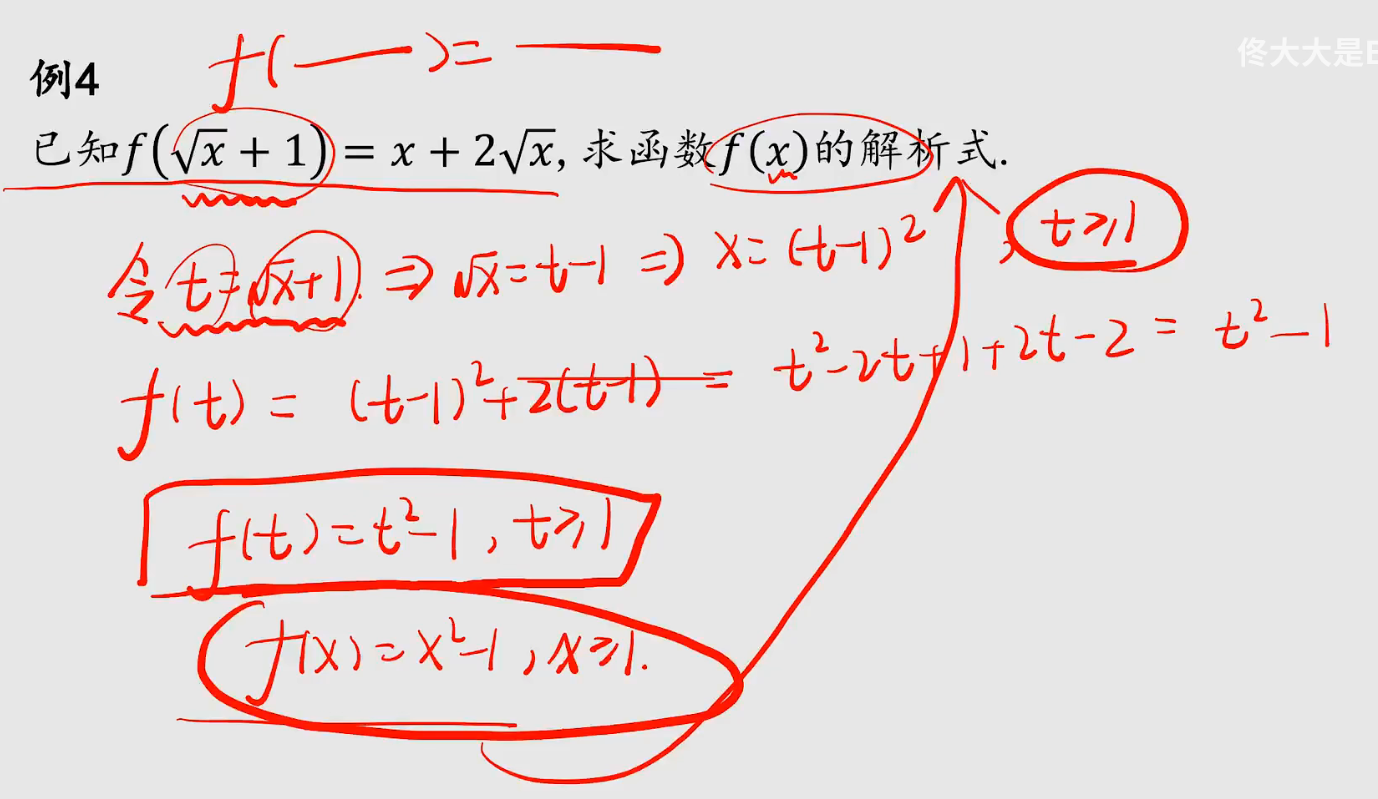 佟大大是
f(——)=——
例4
已知f(√x + 1) = x + 2√x, 求函数f(x)的解析式.
令t=√x+1. ⇒ √x=t-1 ⇒ x=(t-1)², t≥1
f(t) = (t-1)²+2(t-1) = t²-2t+1+2t-2 = t²-1
f(t)=t²-1, t≥1
f(x)=x²-1, x≥1.